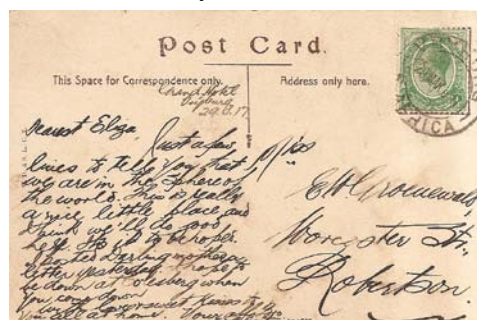 Post Card.
This Space for Correspondence only.
Address only here.
Grand Hotel
29.8.17
AFRICA
Dearest Eliza,
Just a few
lines to tell you that
we are in the
the world. This is really
a nice little place and
I think we'll do good
here
I posted Darling mother a
letter yesterday. I hope to
be down at Colesberg when
you come down
you all at home.
Miss
E. W. Groenewald
Worcester Str.
Robertson.